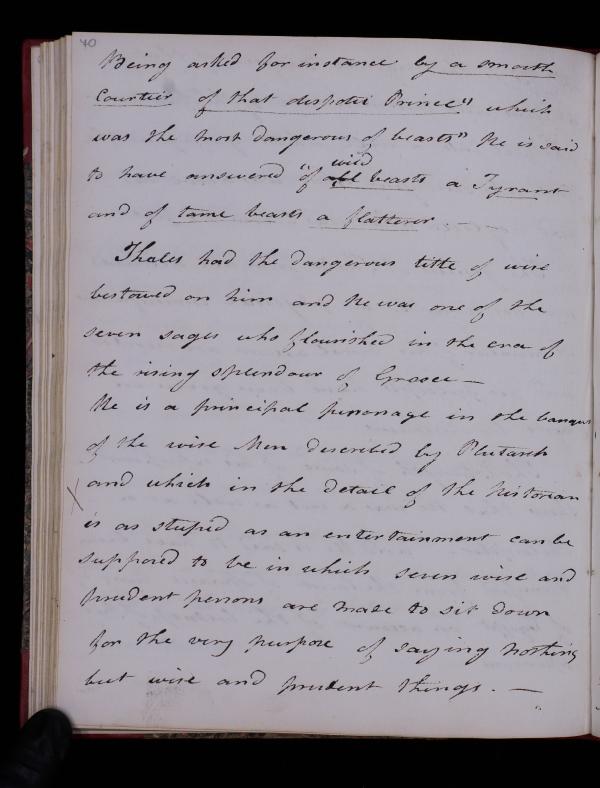 40
Being asked for instance by a smooth
Courtier of that despotic Prince" which
was the most dangerous of beasts" He is said
wild
to have answered "of all beasts a Tyrant
and of tame beasts a flatterer —
Thales had the dangerous title of wise
bestowed on him and he was one of the
seven sages who flourished in the era of
the rising splendour of Greece —
He is a principal personage in the banquet
of the wise Men described by Plutarch
X and which in the detail of the historian
is as stupid as an entertainment can be
supposed to be in which seven wise and
prudent persons are made to sit down
for the very purpose of saying nothing
but wise and prudent things. —